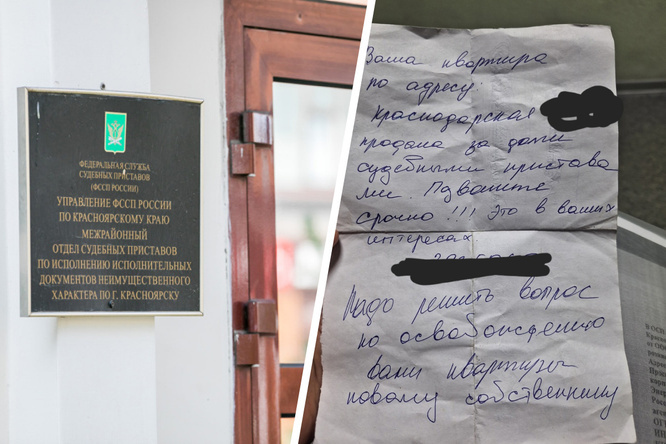 ФЕДЕРАЛЬНАЯ СЛУЖБА
СУДЕБНЫХ ПРИСТАВОВ
(ФССП РОССИИ)
УПРАВЛЕНИЕ ФССП РОССИИ
ПО КРАСНОЯРСКОМУ КРАЮ
МЕЖРАЙОННЫЙ
ОТДЕЛ СУДЕБНЫХ ПРИСТАВОВ
ПО ИСПОЛНЕНИЮ ИСПОЛНИТЕЛЬНЫХ
ДОКУМЕНТОВ НЕИМУЩЕСТВЕННОГО
ХАРАКТЕРА ПО Г. КРАСНОЯРСКУ
Ваша квартира
по адресу:
Краснодарская
продана за долги
судебными пристава
ми. Позвоните
срочно !!! Это в ваших
интересах
Надо решить вопрос
по освобождению
вами квартиры
новому собственнику